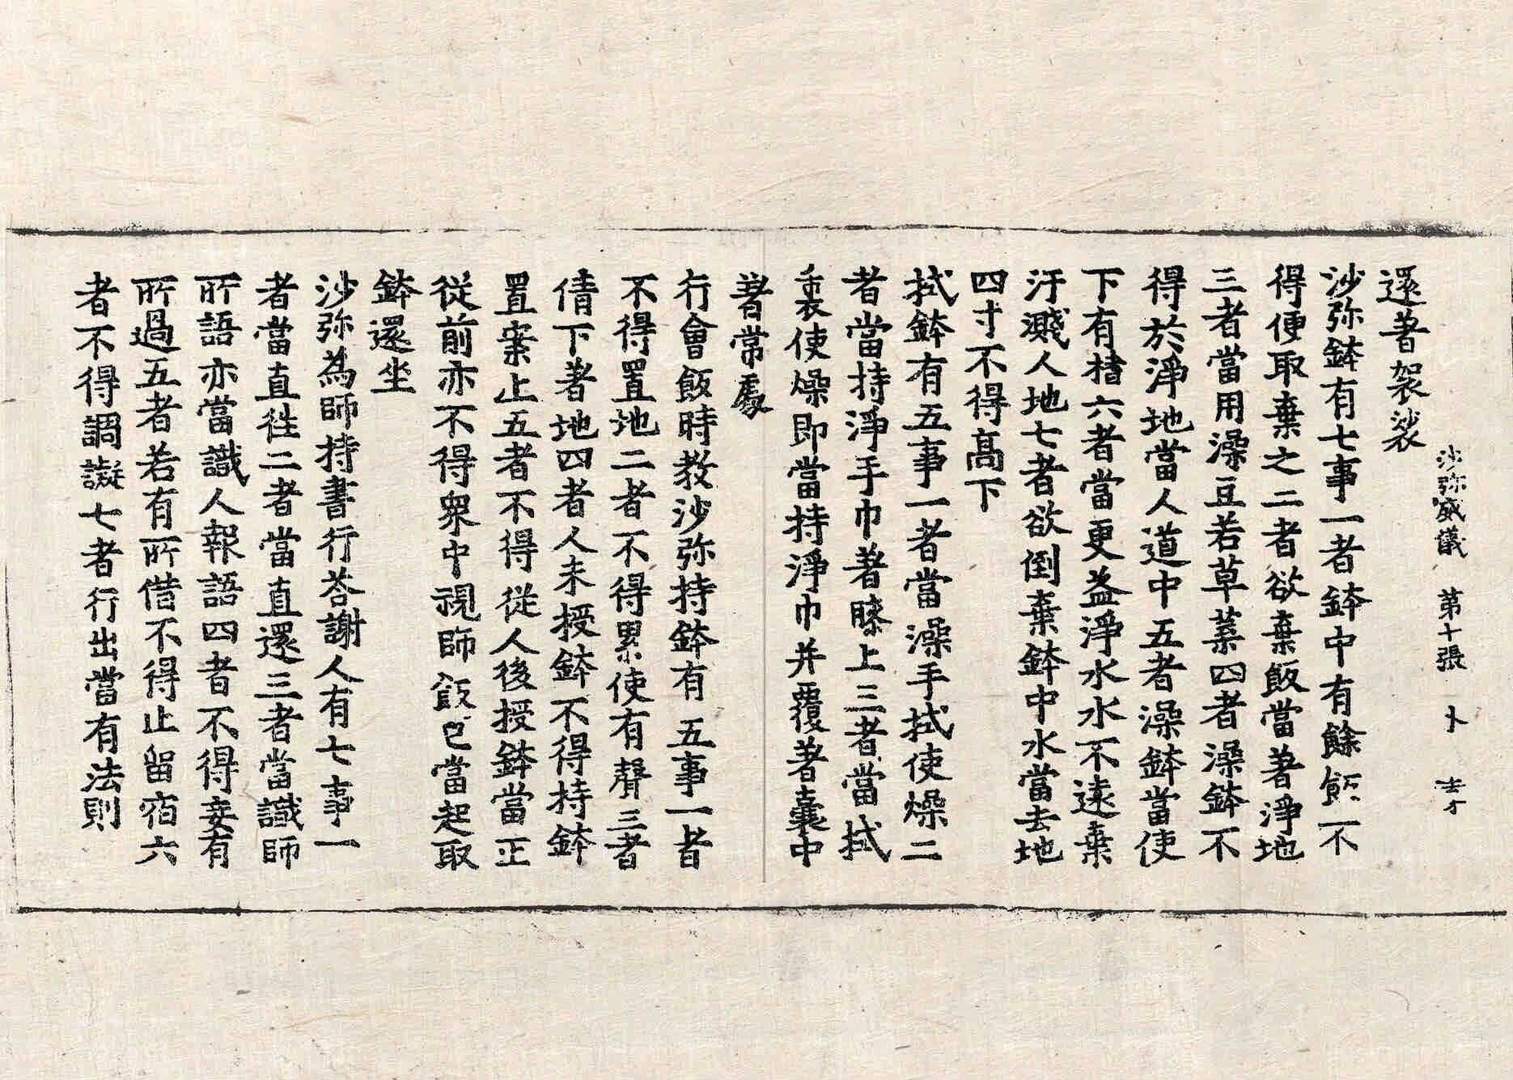 沙弥威儀　第十張　卜
還著袈裟
沙弥鉢有七事一者鉢中有餘飯不
得便取棄之二者欲棄飯當著淨地
三者當用澡豆若草葉四者澡鉢不
得於淨地當人道中五者澡鉢當使
下有楂六者當更益淨水水不遠棄
汙濺人地七者欲倒棄鉢中水當去地
四寸不得髙下
拭鉢有五事一者當澡手拭使燥二
者當持淨手巾著膝上三者當拭
裏使燥即當持淨巾并覆著囊中
著常處
行會飯時教沙弥持鉢有五事一者
不得置地二者不得累使有聲三者
倩下著地四者人未授鉢不得持鉢
置案上五者不得從人後授鉢當正
從前亦不得衆中視師飯已當起取
鉢還坐
沙弥為師持書行荅謝人有七事一
者當直徃二者當直還三者當識師
所語亦當識人報語四者不得妄有
所過五者若有所借不得止留宿六
者不得調譺七者行出當有法則